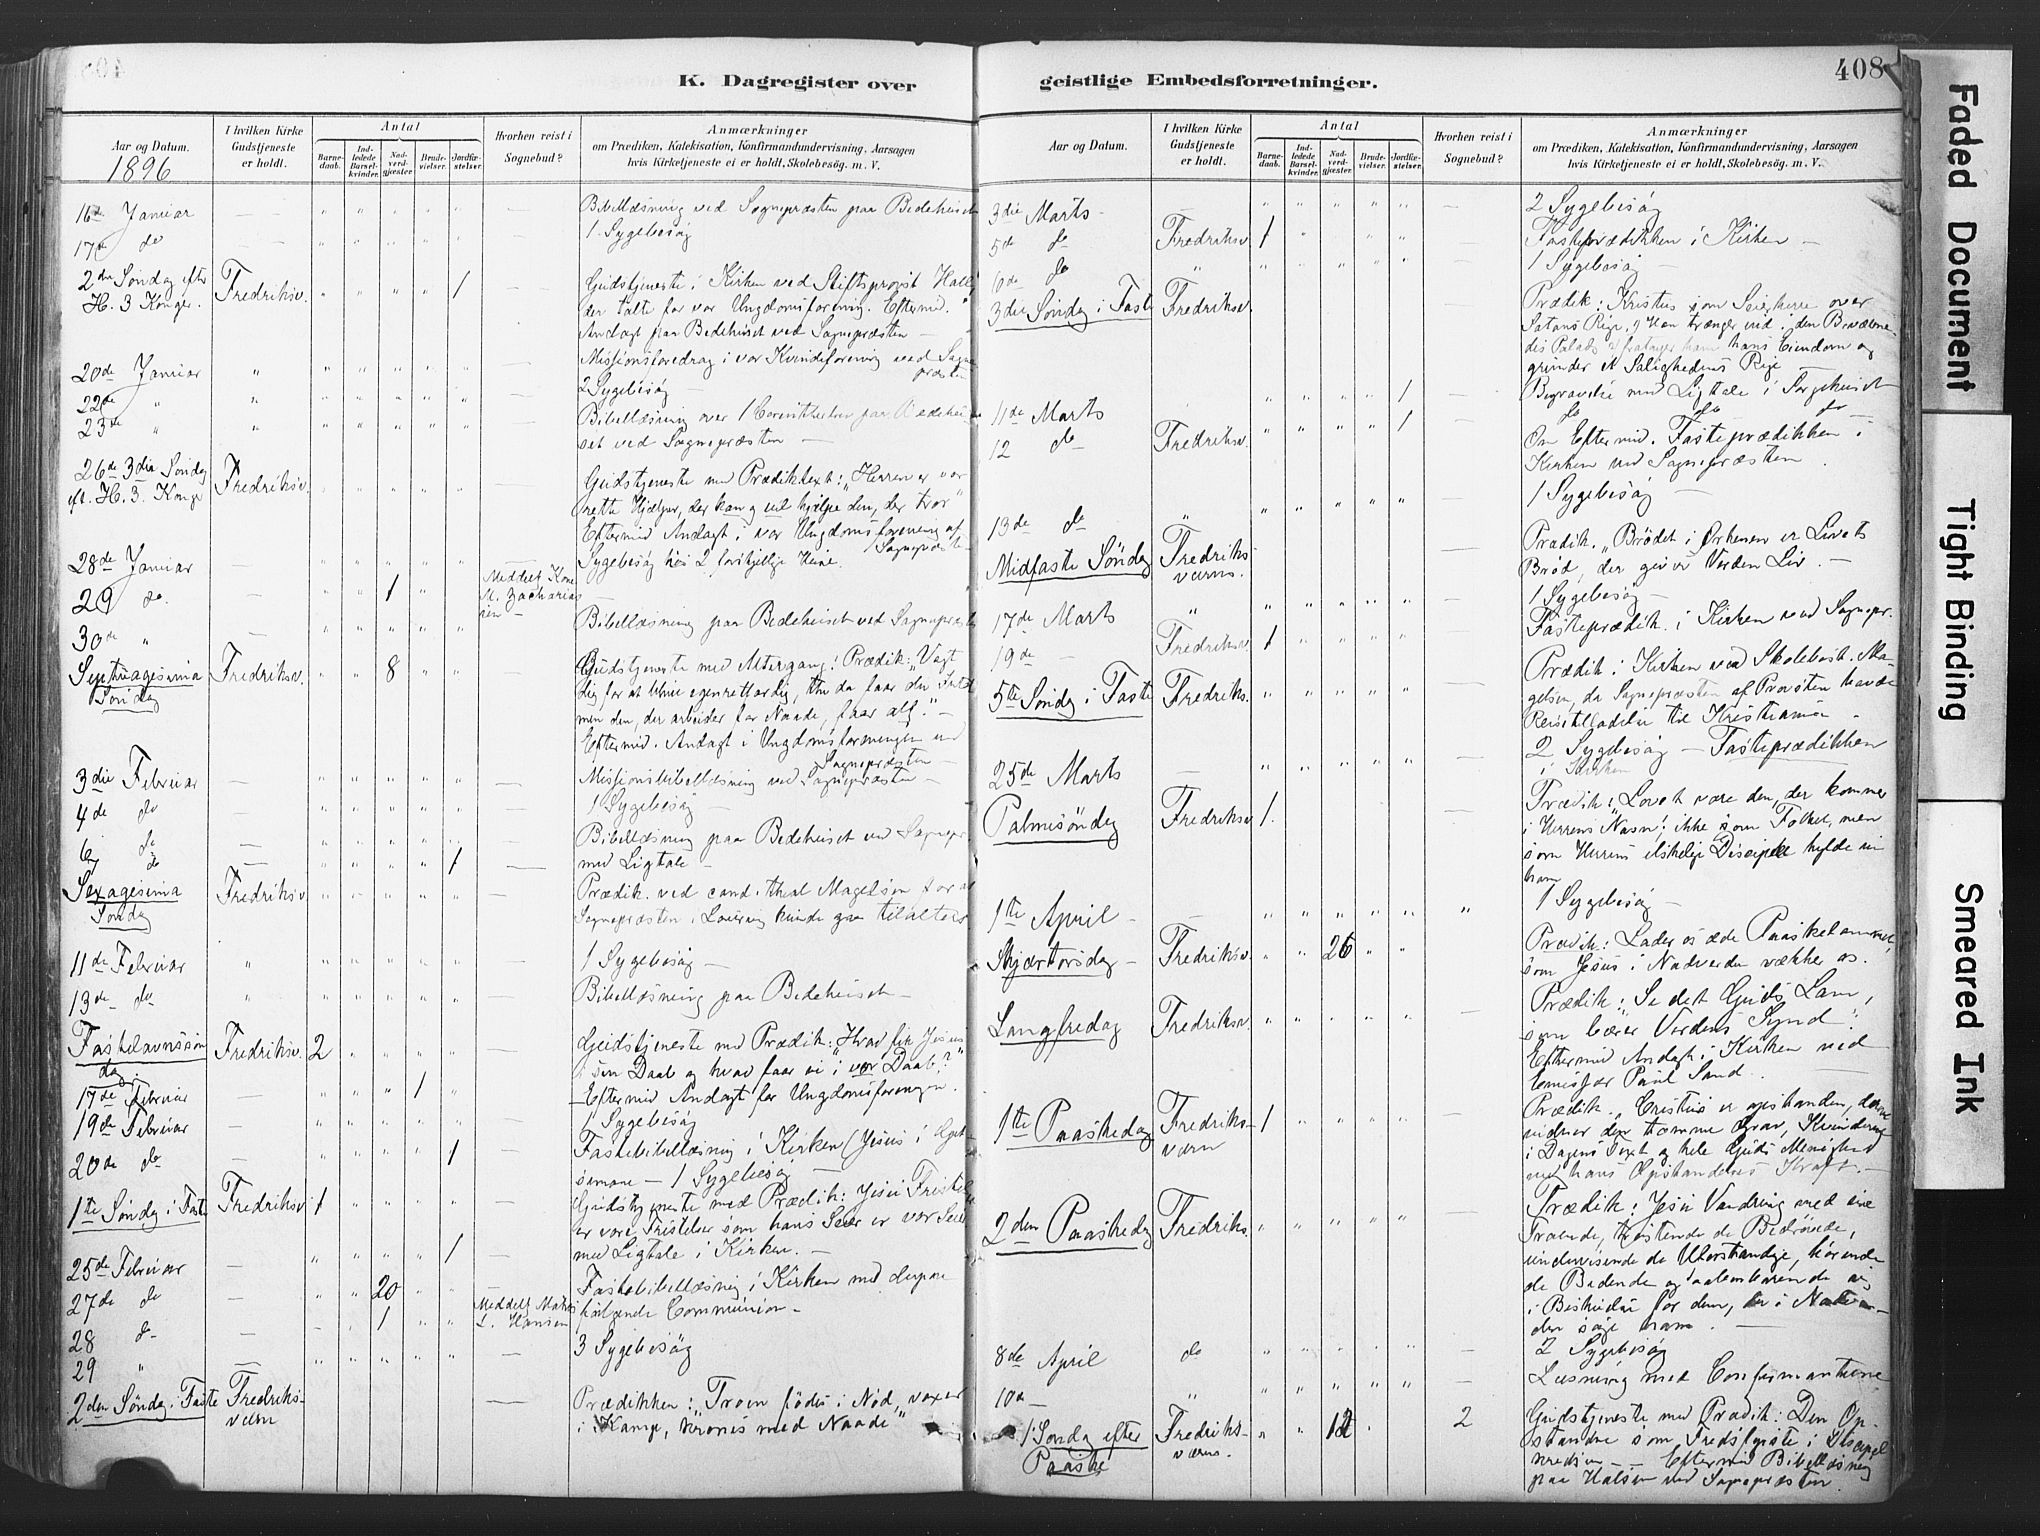 K. Dagregister over
Aar og Datum.
1896
I hvilken Kirke
Gudstjeneste
er holdt.
Antal
Barne-
daab.
Ind-
ledede
Barsel-
kvinder.
Nad-
verd-
gjæster.
Brude-
vielser.
Jordfæ-
stelser.
Hvorhen reist i
Sognebud?
Anmærkninger
om Prædiken, Katekisation, Konfirmandundervisning, Aarsagen
hvis Kirketjeneste ei er holdt, Skolebesög. m. V.
16de Januar
Bibellæsning ved Sognepræsten paa Bedehuset
17de do
1 Sygebesøg
2den Søndag efter
H. 3 Konger.
Fredriksv. 1
Gudstjeneste i Kirken ved Stiftsprovst Hall,
der talte for vor Ungdomsforening. Eftermid.
Andagt paa Bedehuset ved Sognepræsten
20de Januar
Missionsforedrag i vor Kvindeforening ved Sogne
præsten
22de "
2 Sygebesøg
23de "
Bibellæsning over 1 Corintherbrev paa Bedehu-
set ved Sognepræsten
26de 3die Søndag
eft. H. 3. Konge
Fredriksv.
Gudstjeneste med Prædiktext: "Herren er vor
rette Hjælper, der kan og vil hjælpe den, der tror"
Eftermid Andagt i vor Ungdomsforening af
Sognepræsten
28de Januar
Sygebesøg hos 2 forskjellige Heime.
29 do. 1
Meddelt Kone
M. Zacharias
sen
30de "
Bibellæsning paa Bedehuset ved Sognepræsten
Septuagesima
Søndag
Fredriksv. 8
Gudstjeneste med Altergang! Prædik: "Vogt
dig for at blive egenretfærdig, thi da faar du Intet
men den, der arbeider for Naade, faar alt." —
Eftermid. Andagt i Ungdomsforeningen ved
Sognepræsten —
3die Februar
Missionsbibellæsning ved Sognepræsten —
4de do
1 Sygebesøg —
6 do
Bibellæsning paa Bedehuset ved Sognepr.
do 1
med Ligtale —
Sexagesima
Søndag
Fredriksv.
Prædik. ved cand. theol Magelsen for at
Sognepræsten i Laurvig kunde gaa tilalters
11de Februar
1 Sygebesøg —
13de do
Bibellæsning paa Bedehuset —
Fastelavnssøn
dag
Fredriksv. 2
Gudstjeneste med Prædik: "Hvad fik Jesus
i sin Daab og hvad faar vi i vor Daab?"
Eftermid Andagt for Ungdomsforeningen.
17de Februar 1
19de Februar
1 Sygebesøg
Fastebibellæsning i Kirken (Jesus i Get-
semane — 1 Sygebesøg
20de do 1
1ste Søndag i Faste
Fredriksv. 1
Gudstjeneste med Prædik: Jesu Fristelse
er vore Fristelser som hans Seier er vor Seier
25de Februar 1
med Ligtale i Kirken. —
27de do 20
Fastebibellæsning i Kirken med derpaa
følgende Communion —
28 do 1
Meddelt
L. Hansen
29 "
3 Sygebesøg
2den Søndag i Faste
Fredriks-
værn
Prædikken: "Troen fødes i Nød, voxer
i Kamp, krones med Naade"
geistlige Embedsforretninger.
408
Aar og Datum.
I hvilken Kirke
Gudstjeneste
er holdt.
Antal
Barne-
daab.
Ind-
ledede
Barsel-
kvinder.
Nad-
verd-
gjæster.
Brude-
vielser.
Jordfæ-
stelser.
Hvorhen reist i
Sognebud?
Anmærkninger
om Prædiken, Katekisation, Konfirmandundervisning, Aarsagen
hvis Kirketjeneste ei er holdt, Skolebesög. m. V.
3die Marts
2 Sygebesøg
5de do
Fredriksv. 1
Fasteprædikken i Kirken —
10de do
1 Sygebesøg
3die Søndag i Faste
Fredriksv.
Prædik: Kristus som Seierherre over
Satans Rige, og Han trænger ind i den Bevæbne-
des Palads og fratager ham hans Eiendom og
grunder et Salighedens Rige —
11de Marts 1
Begravelse med Ligtale i Sørgehuset
12 do
Fredriksv. 1
do do do
On Eftermid. Fasteprædikken i
Kirken ved Sognepræsten.
13de do
1 Sygebesøg —
Midfaste Søndag
Fredriks-
værns.
Prædik. "Brødet i Ørkenen er Livets
Brød, der giver Verden Liv. —
17de Marts
1 Sygebesøg —
19de —
Fredriksv. 1
Fasteprædik. i Kirken ved Sognepr.
5te Søndag i Faste
Fredriksv.
Prædik. i Kirken ved Skolebest. Ma-
gelsen, da Sognepræsten af Provsten havde
Reisetilladelse til Kristiania.
25de Marts
2 Sygebesøg — Fasteprædikken
i Kirken
Palmesøndag
Fredriksv. 1.
Prædik: Lovet være den, der kommer
i Herrens Navn! ikke som Folket, men
som Herrens elskelige Disciple hylde vi
ham
1ste April
1 Sygebesøg —
Skjærtorsdag —
Fredriksv. 26
Prædik: Lader os æde Paaskelammet,
som Jesus i Nadverden rækker os.
Langfredag
Fredriksv.
Prædik: "Se det Guds Lam,
som bærer Verdens Synd"!
Eftermid Andagt i Kirken ved
Emissær Paul Sand. —
1ste Paaskedag
Fredriks-
værn 1
Prædik. "Cristus er opstanden,
vidner den tomme Grav, Kvinderne
i Dagens Text og hele Guds Menighed
med hans Opstandelses Kraft. —
2den Paaskedag
Fredriks.
Prædik: Jesu Vandring med sine
Troende, trøstende de Bedrøvede,
undervisende de Uforstandige, hørende
de Bedende og aabenbarende sig
i Beskuelse for dem, der i Nadver-
den søge ham. —
8de April do
2 Sygebesøg
10de "
Læsning med Confirmanterne
1. Søndag efter
Paaske
Fredriks-
værns. 12 2
Gudstjeneste med Prædik: Den Op-
standne som Fredsfyrste i Discipel
kredsen — Eftermid Bibellæsning
paa Halsen ved Sognepræsten.
Faded Document
Tight Binding
Smeared Ink